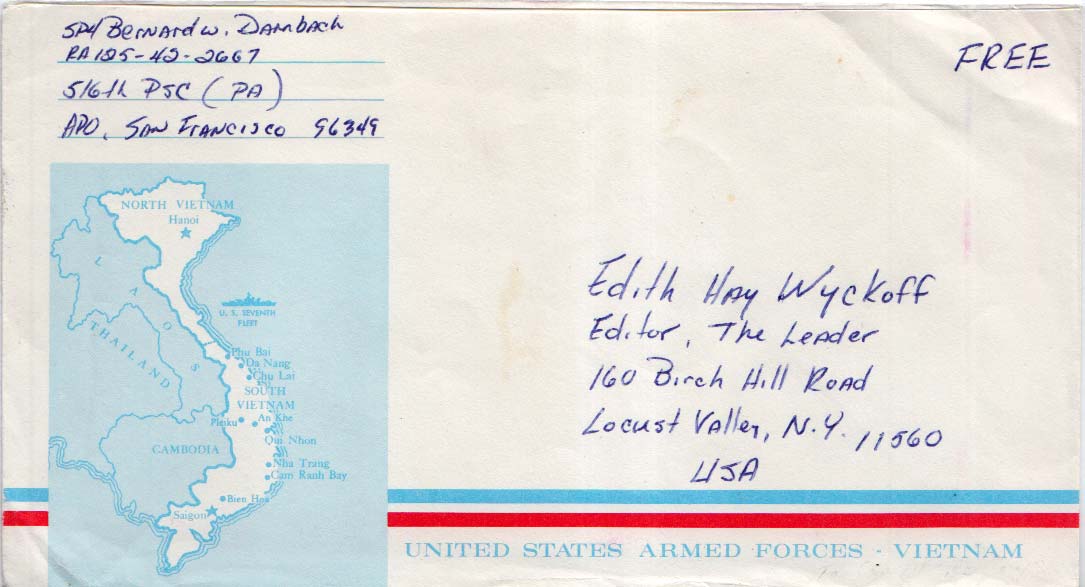 SP4 Bernard W. Dambach
RA 125-42-2667
516th PSC (PA)
APO, San Francisco 96349
FREE
NORTH VIETNAM
Hanoi
LAOS
THAILAND
U. S. SEVENTH
FLEET
Phu Bai
Da Nang
Chu Lai
SOUTH
VIETNAM
Pleiku
An Khe
Qui Nhon
CAMBODIA
Nha Trang
Cam Ranh Bay
Bien Hoa
Saigon
Edith Hay Wyckoff
Editor, The Leader
160 Birch Hill Road
Locust Valley, N.Y. 11560
USA
UNITED STATES ARMED FORCES · VIETNAM